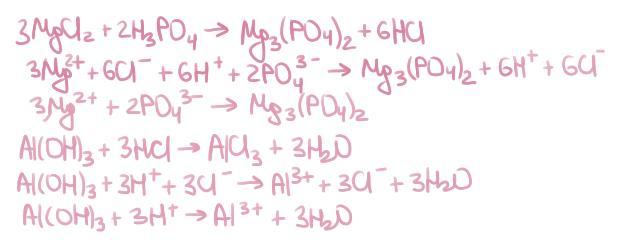 3MgCl₂ + 2H₃PO₄ → Mg₃(PO₄)₂ + 6HCl
3Mg²⁺ + 6Cl⁻ + 6H⁺ + 2PO₄³⁻ → Mg₃(PO₄)₂ + 6H⁺ + 6Cl⁻
3Mg²⁺ + 2PO₄³⁻ → Mg₃(PO₄)₂
Al(OH)₃ + 3HCl → AlCl₃ + 3H₂O
Al(OH)₃ + 3H⁺ + 3Cl⁻ → Al³⁺ + 3Cl⁻ + 3H₂O
Al(OH)₃ + 3H⁺ → Al³⁺ + 3H₂O